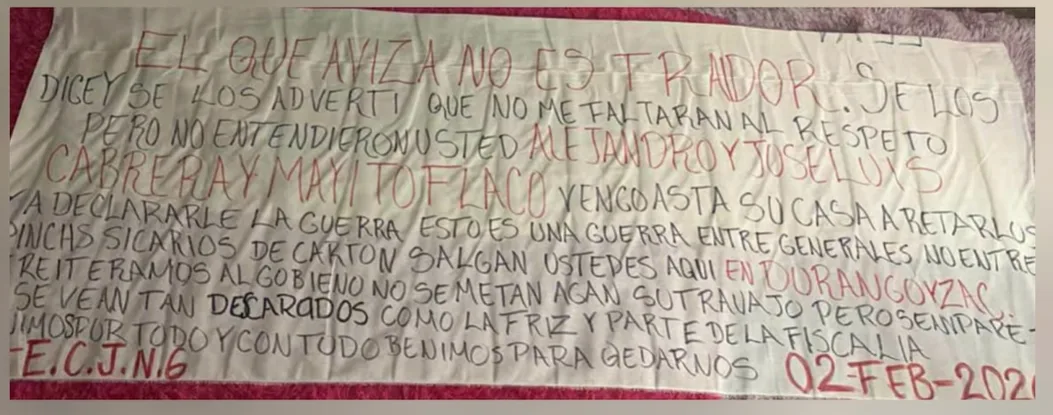 EL QUE AVIZA NO ES TRAIDOR. SE LOS
DICEY SE LOS ADVERTI QUE NO ME FALTARAN AL RESPETO
PERO NO ENTENDIERON USTED ALEJANDRO Y JOSE LUYS
CABRERA Y MAYITO FLACO VENGO ASTA SU CASA A RETARLOS
A DECLARARLE LA GUERRA ESTO ES UNA GUERRA ENTRE GENERALES NO ENTRE
PINCHS SICARIOS DE CARTON SALGAN USTEDES AQUI EN DURANGO Y ZAC.
REITERAMOS AL GOBIENO NO SE METAN AGAN SU TRAVAJO PERO SEAN PARE-
SE VEAN TAN DESCARADOS COMO LA FRIZ Y PARTE DE LA FISCALIA
POR TODO Y CON TODO BENIMOS PARA QEDARNOS
E.C.J.N.G 02-FEB-202